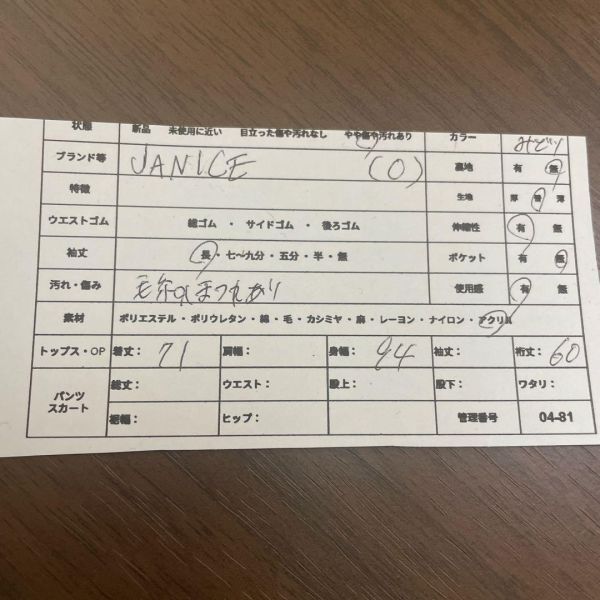 状態 新品 未使用に近い 目立った傷や汚れなし やや傷や汚れあり カラー みどり
ブランド等 JANICE (O) 裏地 有 無
特徴 生地 厚 普 薄
ウエストゴム 総ゴム ・ サイドゴム ・ 後ろゴム 伸縮性 有 無
袖丈 長・七〜九分・五分・半・無 ポケット 有 無
汚れ・傷み 毛糸のまつれあり 使用感 有 無
素材 ポリエステル・ポリウレタン・綿・毛・カシミヤ・麻・レーヨン・ナイロン・アクリル
トップス・OP 着丈: 71 肩幅: 身幅: 44 袖丈: 裄丈: 60
パンツ スカート 総丈: ウエスト: 股上: 股下: ワタリ:
裾幅: ヒップ: 管理番号 04-81